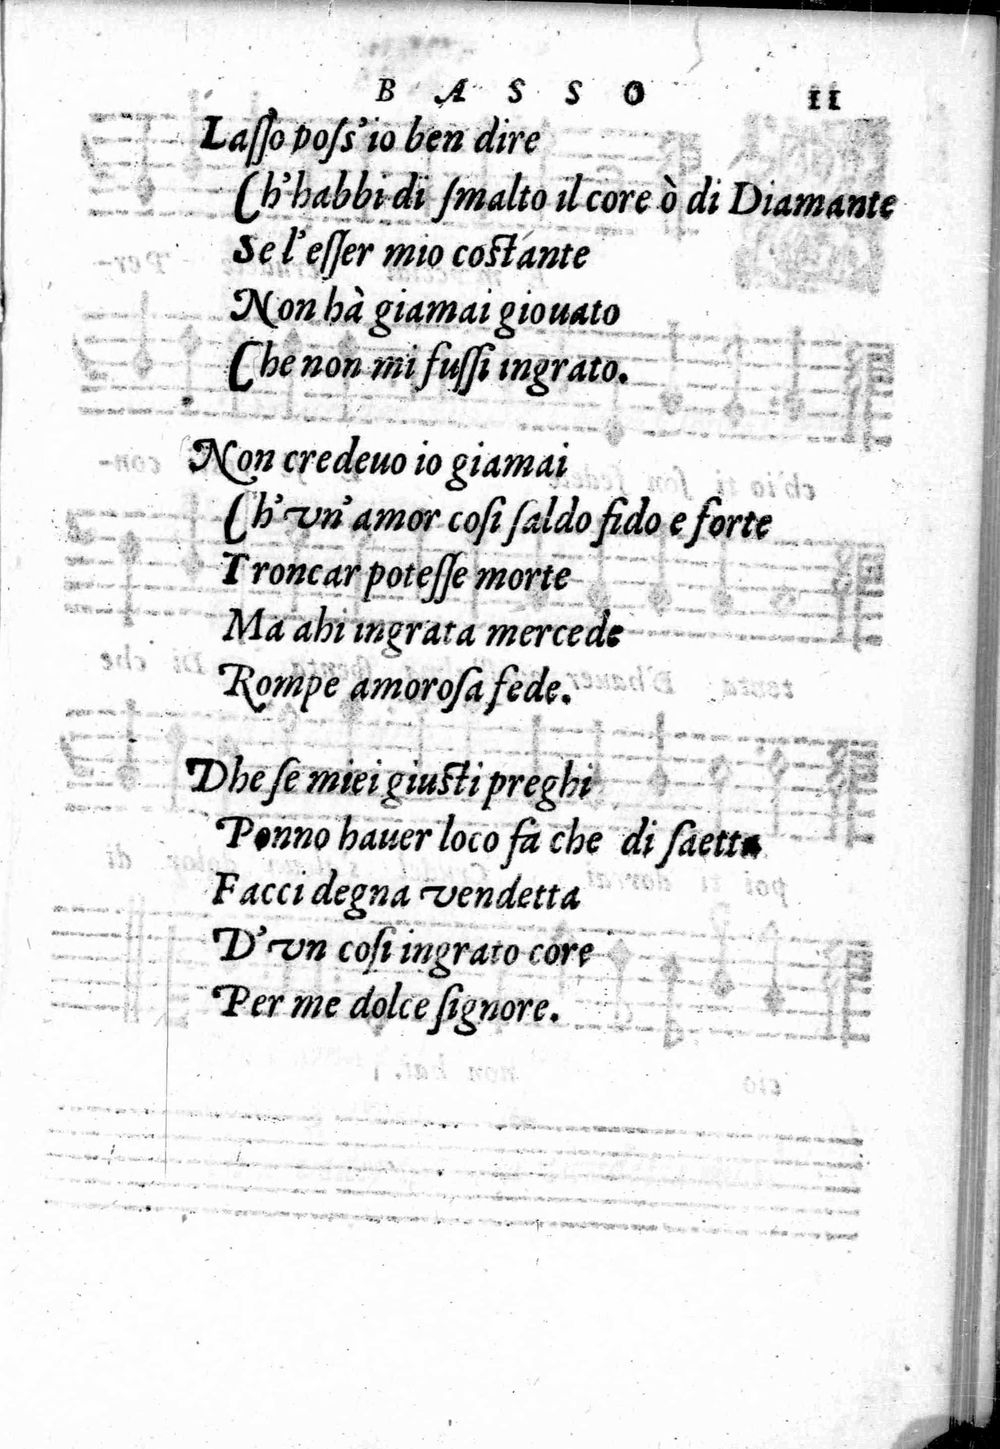 BASSO 11
Lasso poss'io ben dire
Ch'habbi di smalto il core ò di Diamante
Se l'esser mio costante
Non hà giamai giouato
Che non mi fussi ingrato.
Non credeuo io giamai
Ch'vn' amor cosi saldo fido e forte
Troncar potesse morte
Ma ahi ingrata mercede
Rompe amorosa fede.
Dhe se miei giusti preghi
Ponno hauer loco fa che di saetta
Facci degna vendetta
D'vn cosi ingrato core
Per me dolce signore.